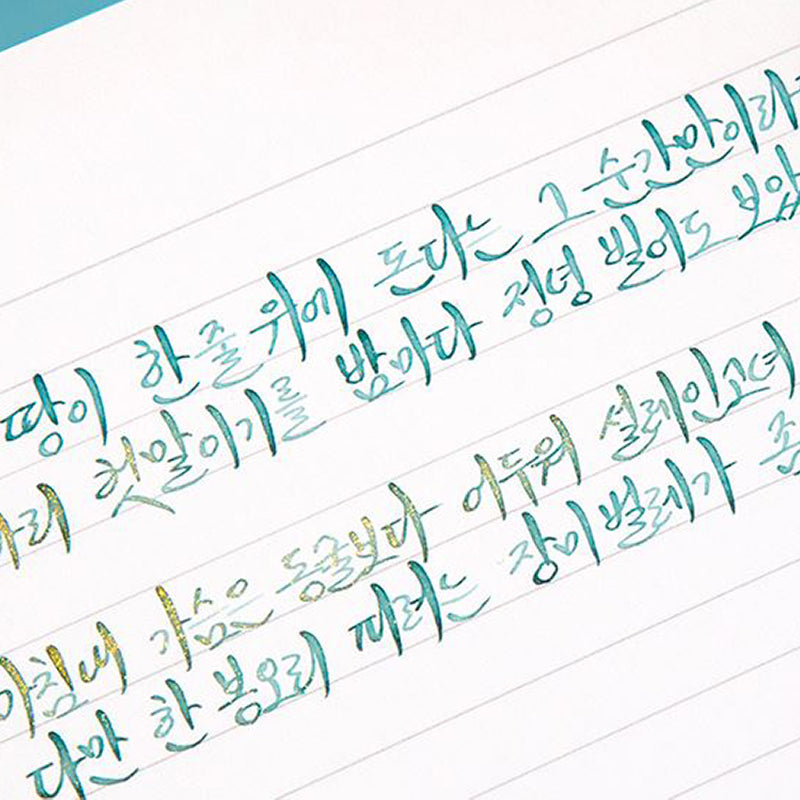 땅이 한 줄 위에 도다는 그 순간만이라
차라리 헛말이기를 밤마다 정녕 빌어도 보았
마침내 가슴은 동굴보다 어두워 설레인고녀
다만 한 봉오리 피려는 장미 벌레가 좀